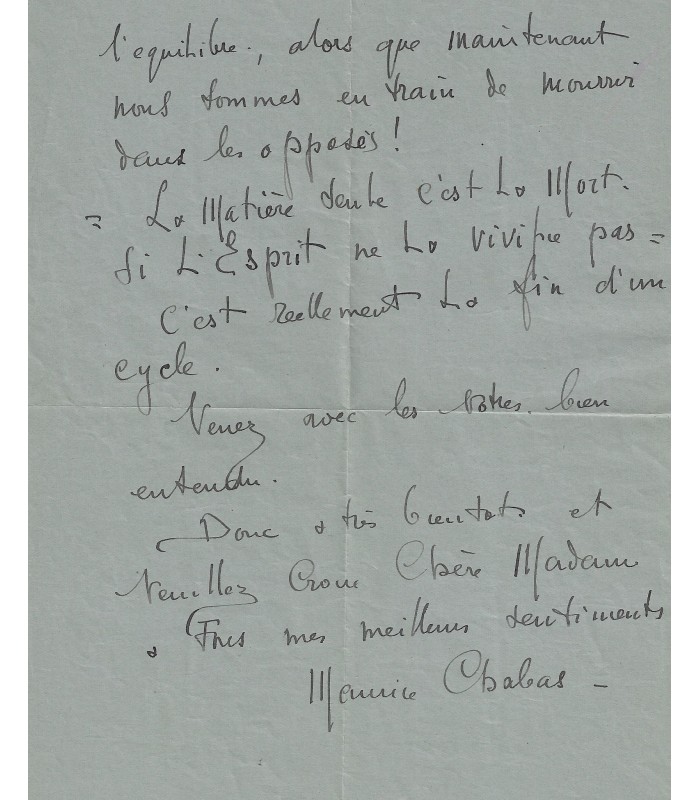 l'equilibre, alors que maintenant
nous sommes en train de mourrir
dans les opposés !
= La Matière seule c'est La Mort.
Si L'Esprit ne La vivifie pas =
C'est reellement La fin d'un
cycle.
Venez avec les vôtres bien
entendu.
Donc a très bientot et
Veuillez Croire Chère Madame
a Tous mes meilleurs sentiments
Maurice Chabas -